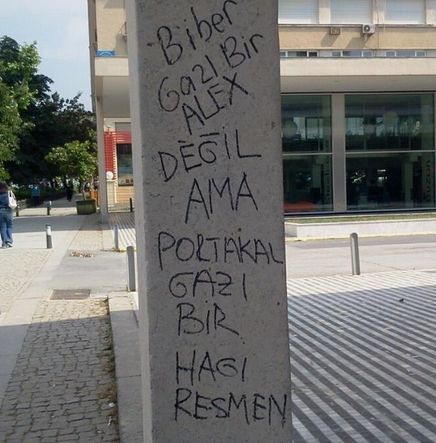 Biber
Gazi Bir
ALEX
DEĞİL
AMA
PORTAKAL
GAZI
BIR
HAGI
RESMEN